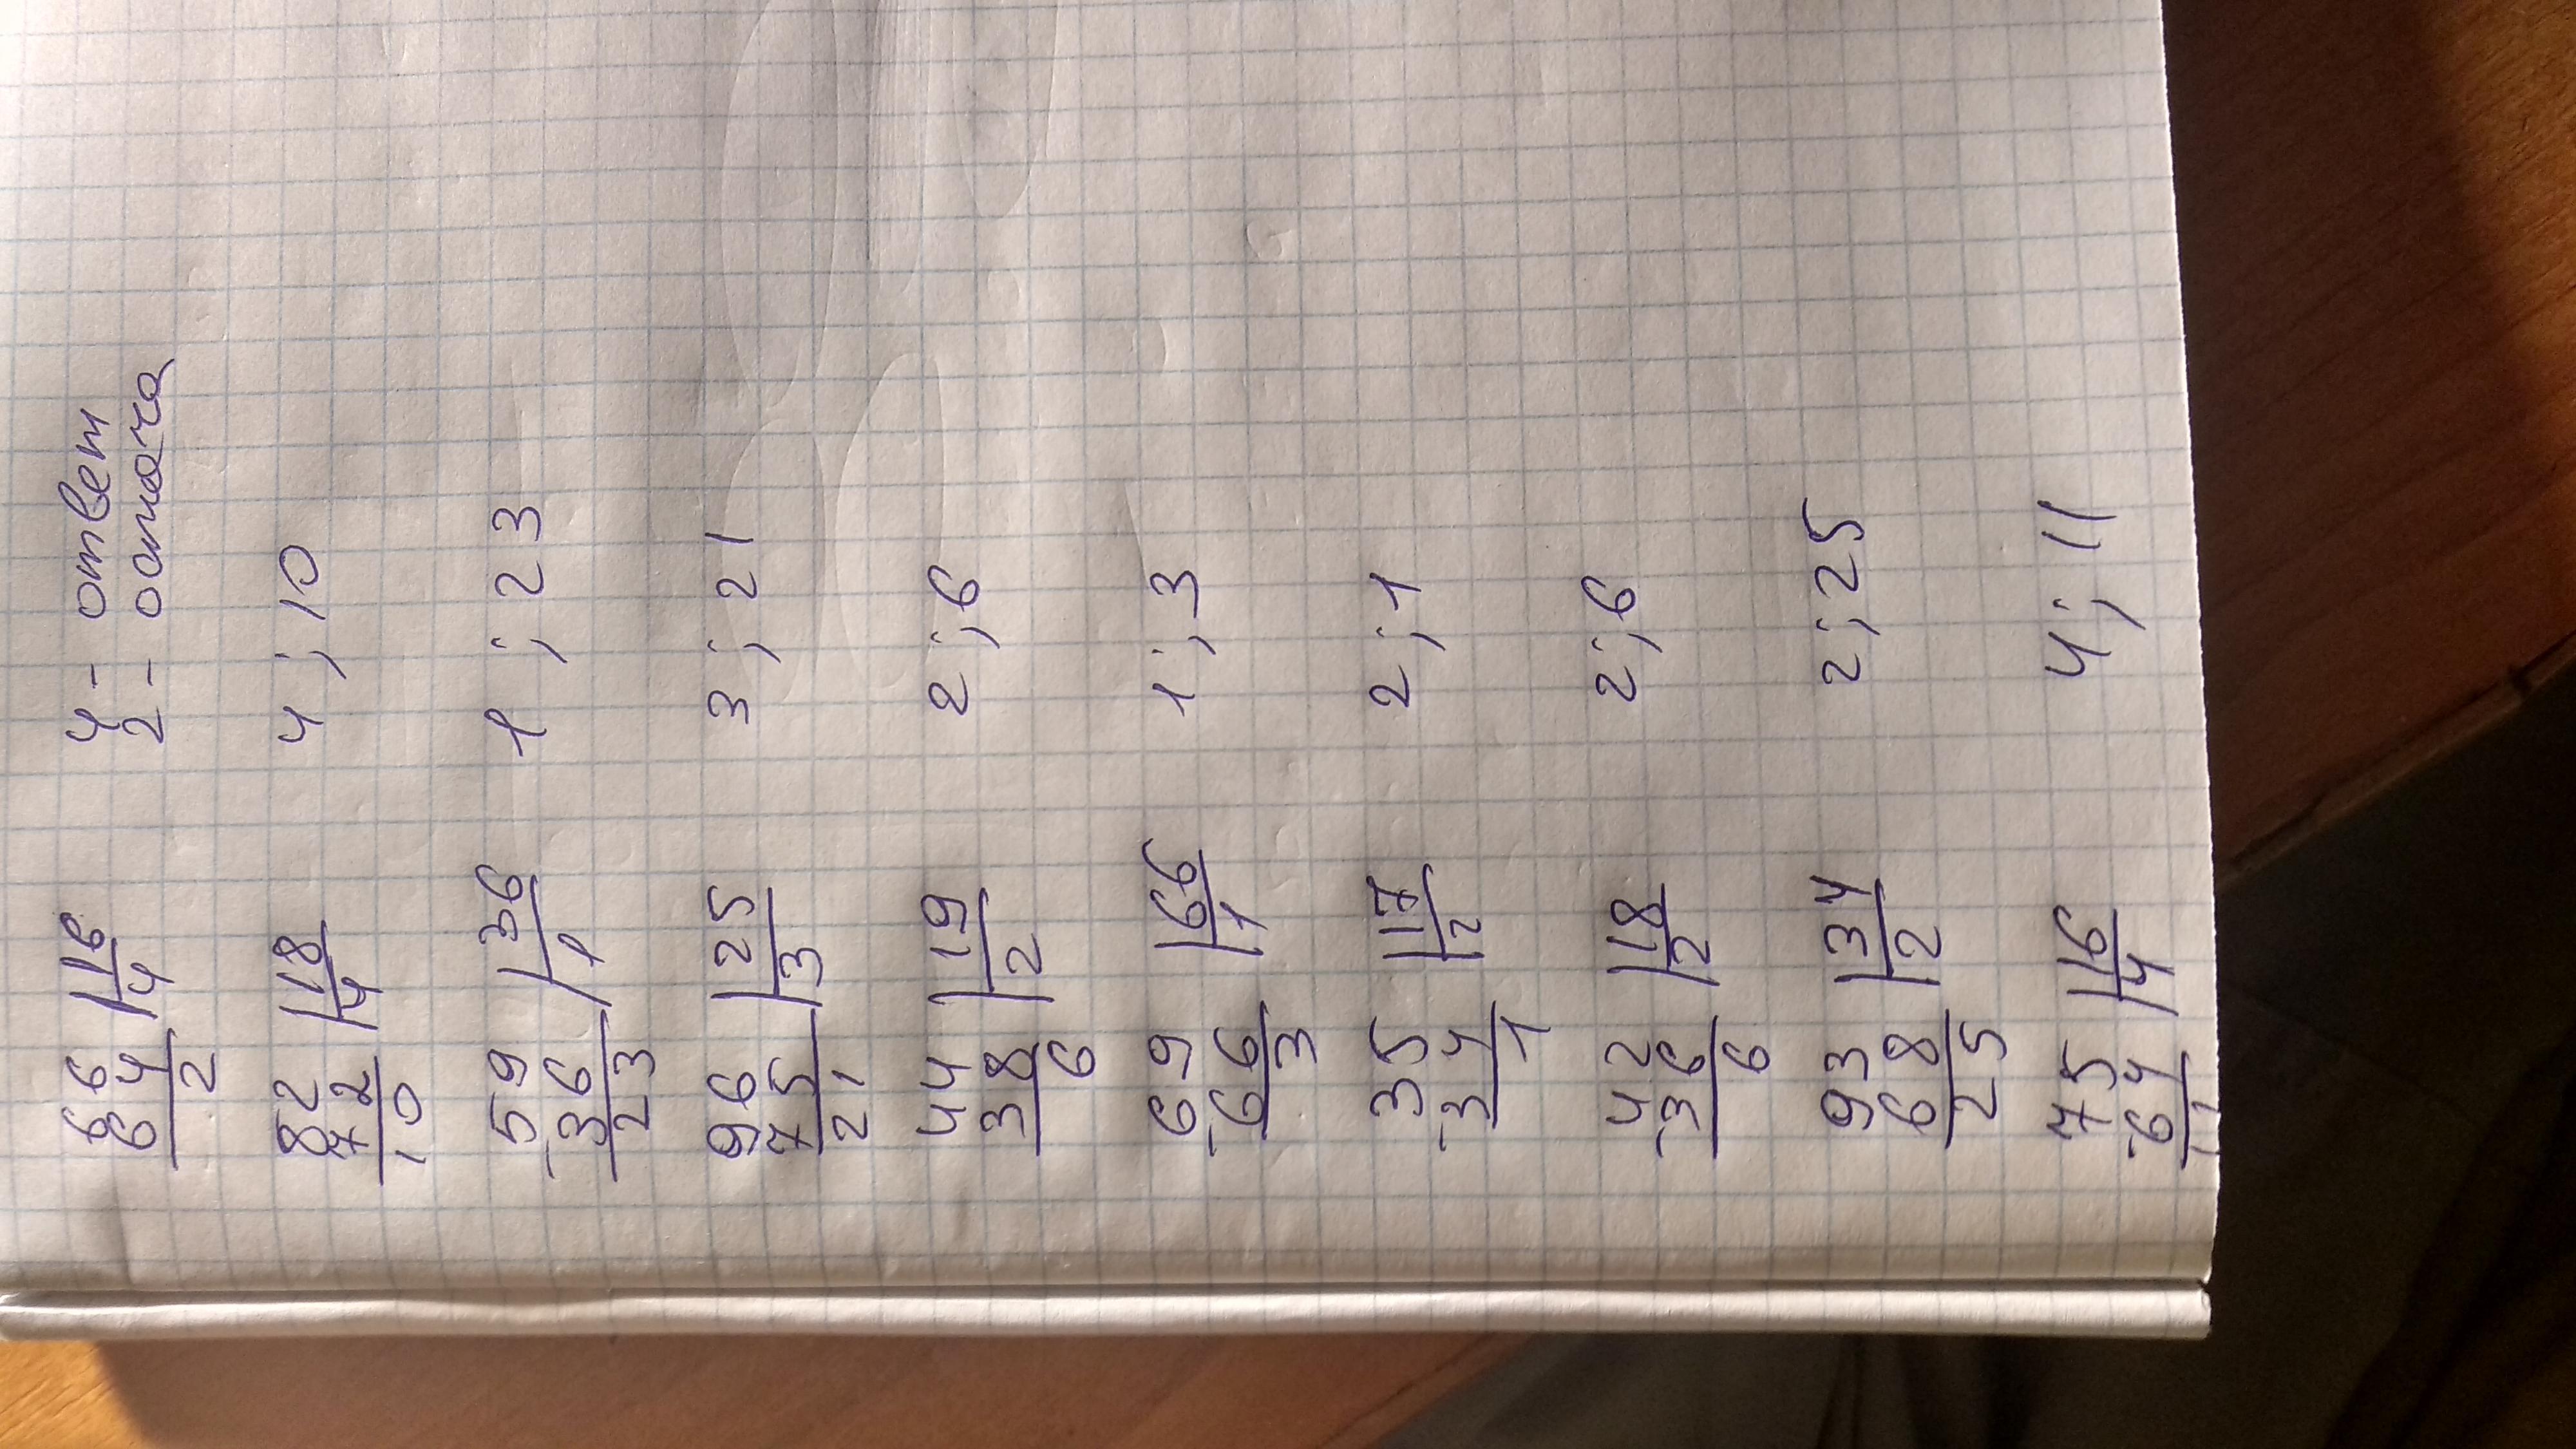 66 |16 4 - ответ
64 |4 2 - остача
2
82 |18 4 ; 10
72 |4
10
59 |36 1 ; 23
-36 |1
23
96 |25 3 ; 21
75 |3
21
44 |19 2 ; 6
38 |2
6
69 |66 1 ; 3
-66 |1
3
35 |17 2 ; 1
-34 |2
1
42 |18 2 ; 6
-36 |2
6
93 |34 2 ; 25
68 |2
25
75 |16 4 ; 11
-64 |4
11